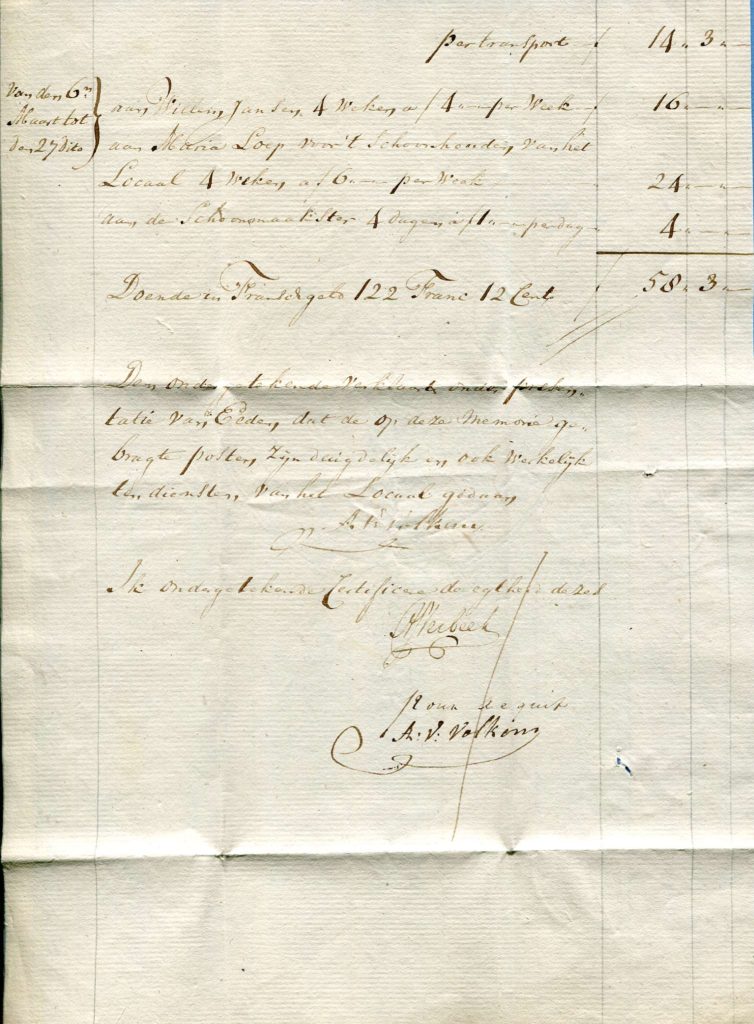 per transport f 14 " 3 " —
van den 6n
Maart tot
den 27 dito
aan Willem Jansen 4 Weken a f 4 " — per Week f 16 " — " —
aan Maria Loep voor't Schoonhouden van het
Locaal 4 Weken a f 6 " — per Week 24 " — " —
aan de Schoonmaakster 4 dagen a f 1 " — per dag 4 " — " —
f 58 " 3 " —
Doende in Fransch geld 122 Franc 12 Cent
Den ondergetekende Verklaart onder presen-
tatie van Eeden, dat de op deze Memorie ge-
bragte posten Zijn duigdelijk en ook Werkelijk
ten diensten van het Locaal gedaan
A: V: Volkom
Ik ondergetekende Certificere de egtheid dezes
Verbeek
Pour acquit
A: V: Volkom